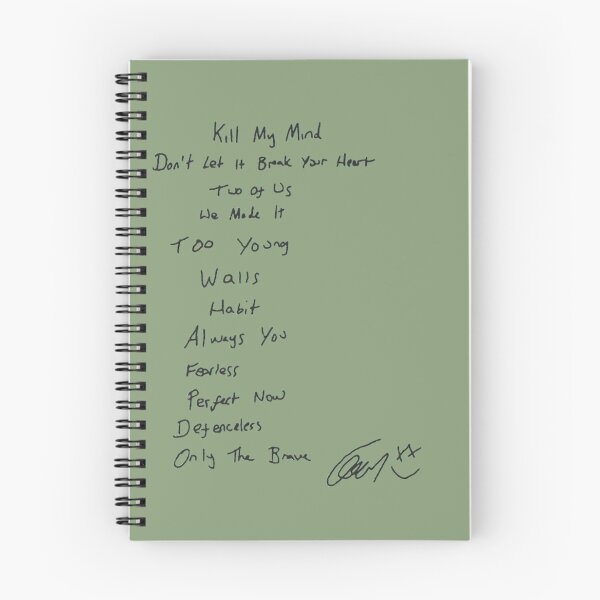 Kill My Mind
Don't Let It Break Your Heart
Two of Us
We Made It
Too Young
Walls
Habit
Always You
Fearless
Perfect Now
Defenceless
Only The Brave